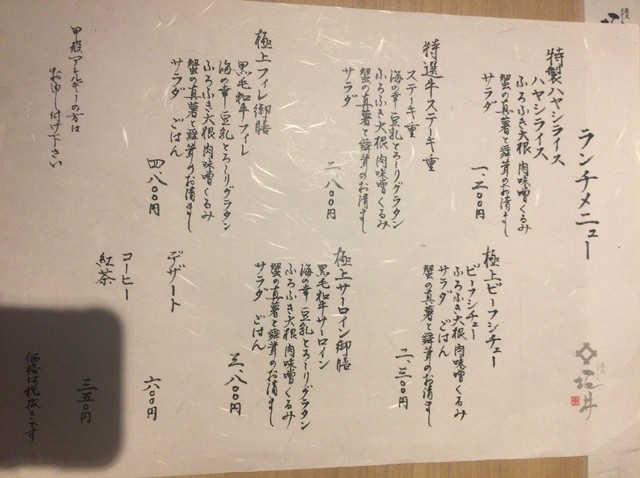 ランチメニュー
特製ハヤシライス
ハヤシライス
ふろふき大根 肉味噌くるみ
蟹の真薯と舞茸のお清まし
サラダ
一、二〇〇円
特選牛ステーキ重
ステーキ重
海の幸 豆乳とろーりグラタン
ふろふき大根 肉味噌くるみ
蟹の真薯と舞茸のお清まし
サラダ
二、八〇〇円
極上フィレ御膳
黒毛和牛フィレ
海の幸 豆乳とろーりグラタン
ふろふき大根 肉味噌くるみ
蟹の真薯と舞茸のお清まし
サラダ ごはん
四、八〇〇円
甲殻アレルギーの方は
お申し付け下さい
極上ビーフシチュー
ビーフシチュー
ふろふき大根 肉味噌くるみ
蟹の真薯と舞茸のお清まし
サラダ ごはん
二、三〇〇円
極上サーロイン御膳
黒毛和牛サーロイン
海の幸 豆乳とろーりグラタン
ふろふき大根 肉味噌くるみ
蟹の真薯と舞茸のお清まし
サラダ ごはん
三、八〇〇円
デザート
六〇〇円
コーヒー
紅茶
三五〇円
価格は税抜きです